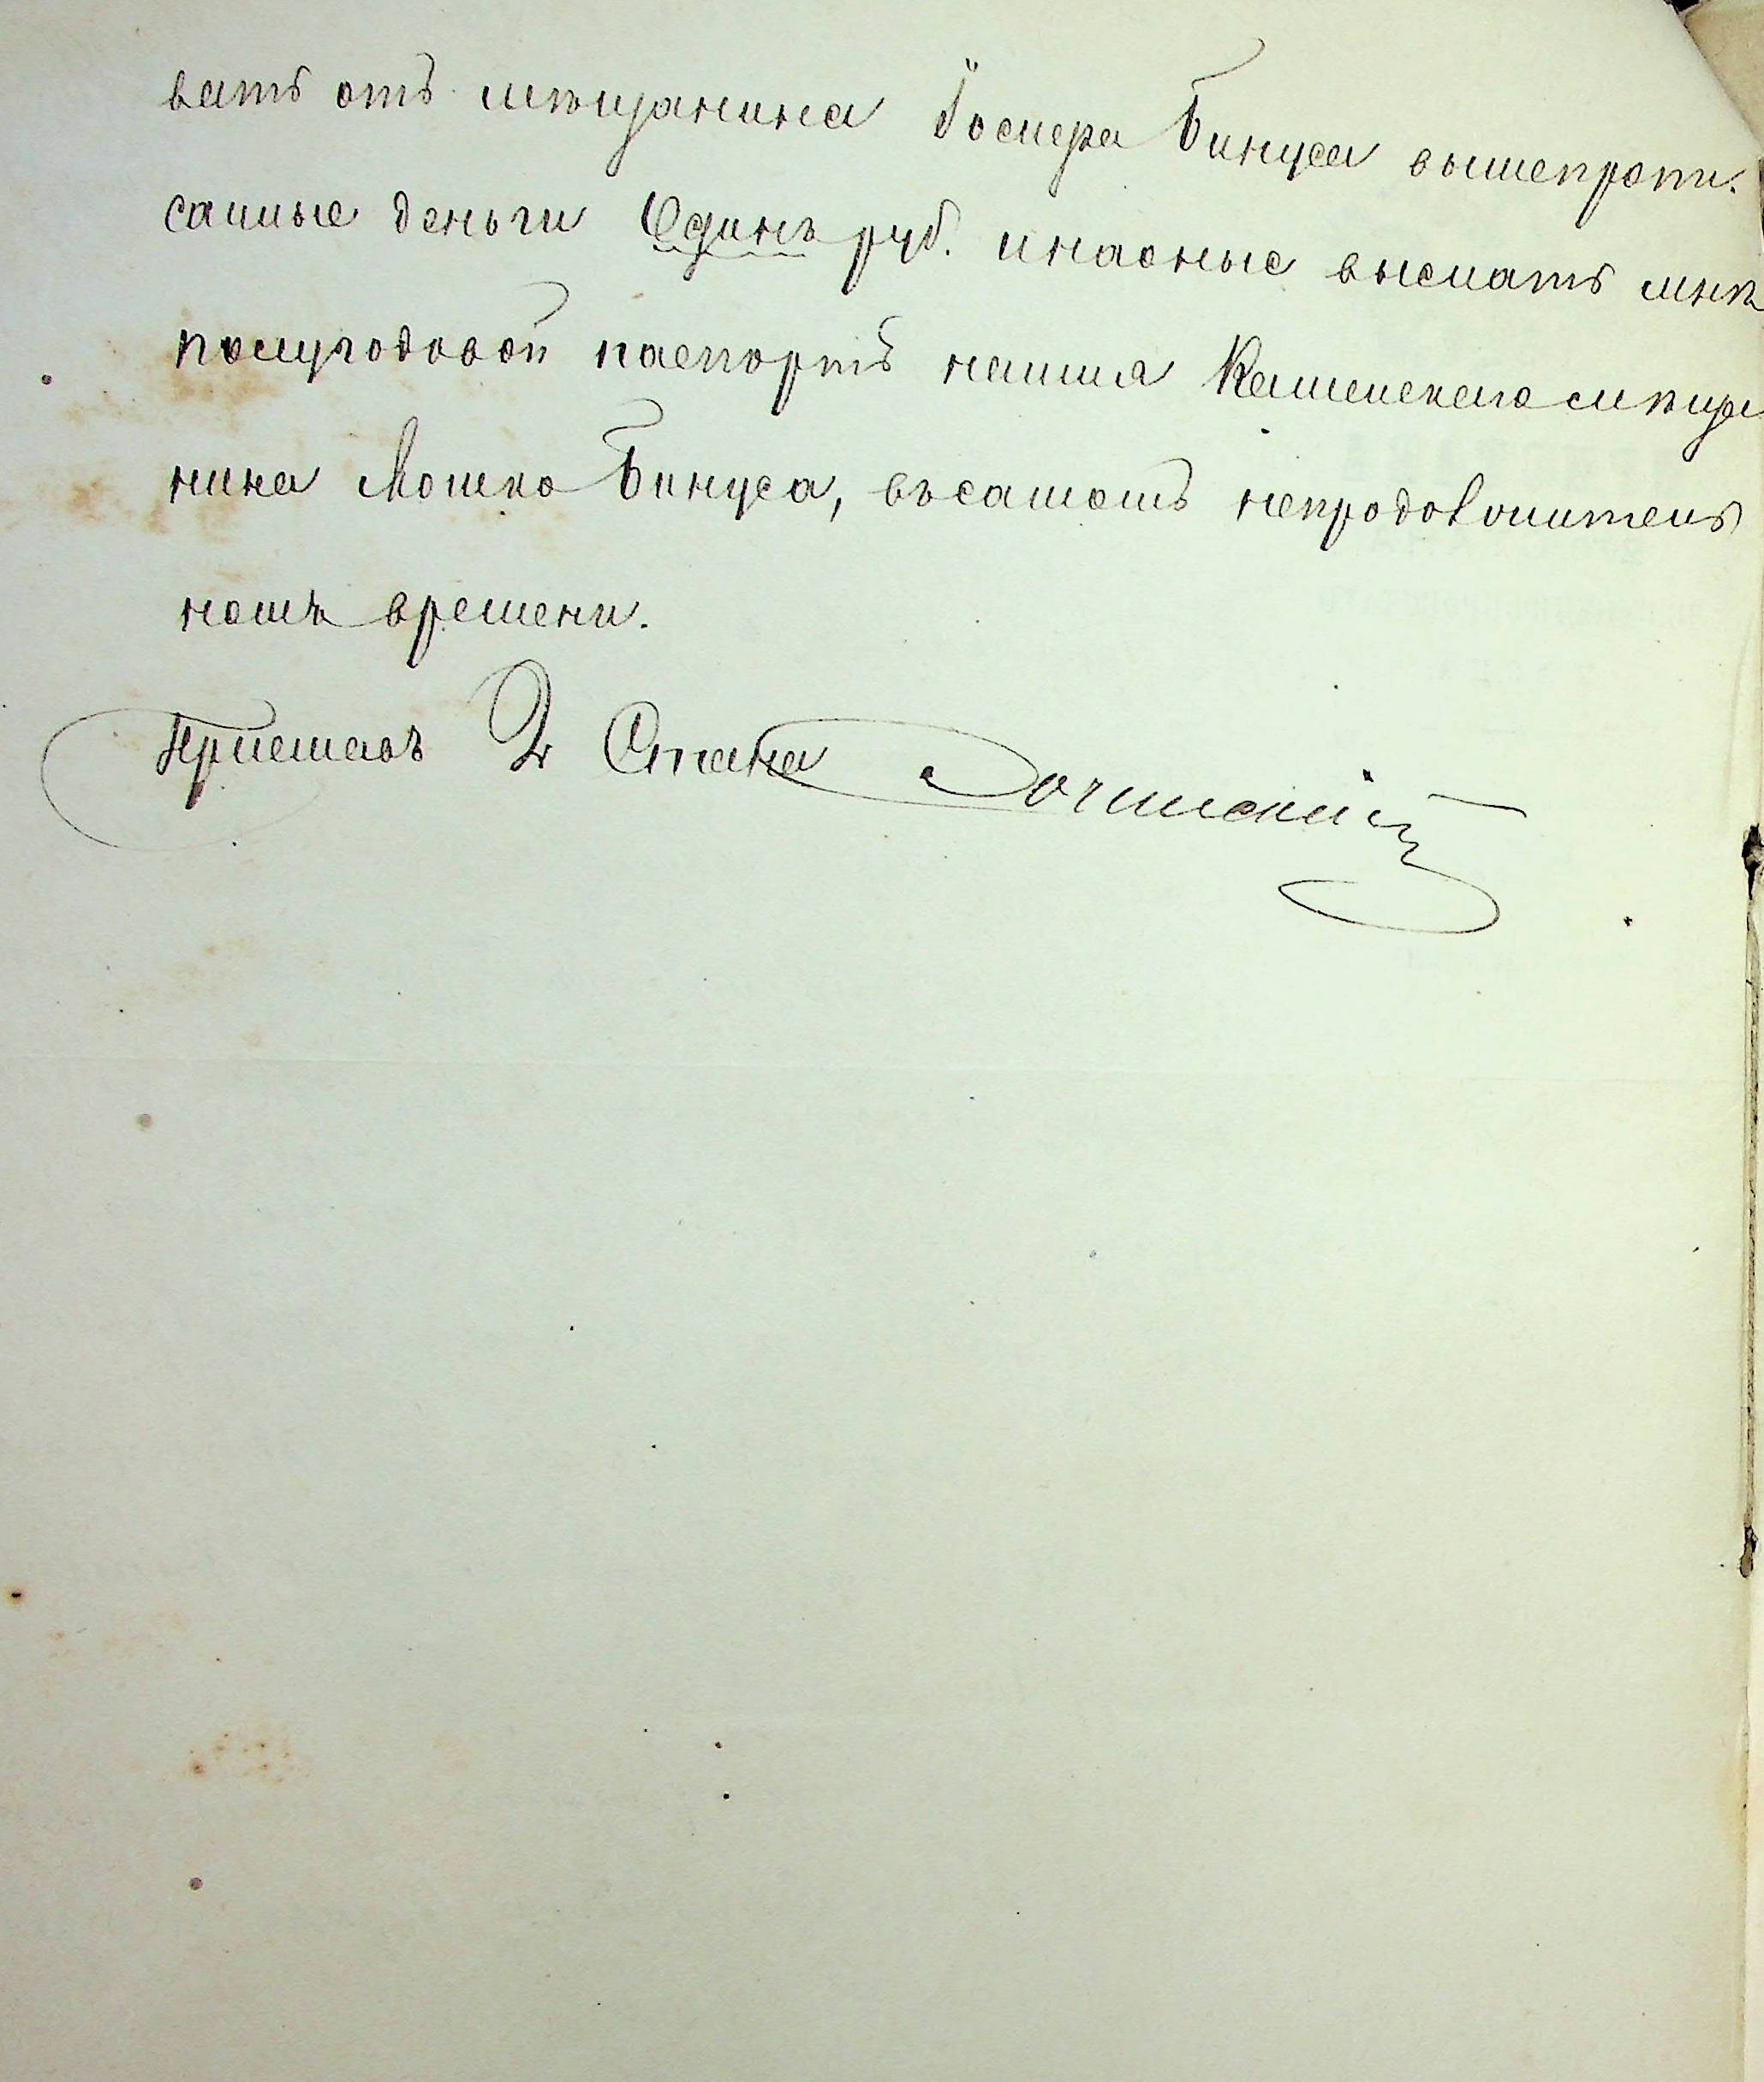 вать отъ мѣщанина Іосифа Бинуса вышепропи-
санные деньги Одинъ руб. и наоные выслать мнѣ
полугодовой паспортъ на имя Каменскаго мѣща
нина Мошко Бинуса, въ самомъ непродолжитель
номъ времени.
Приставъ 2 Стана